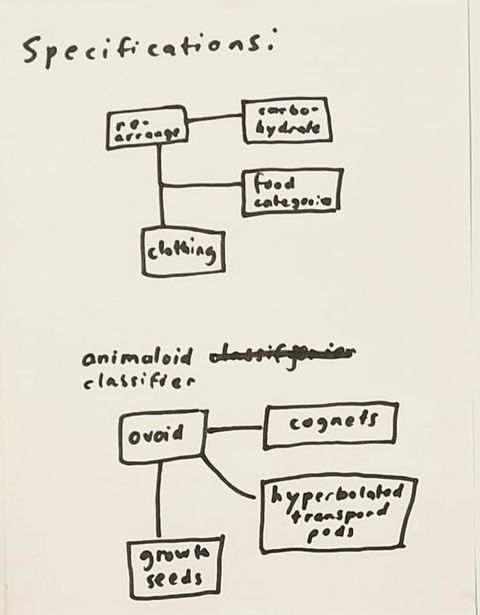 Specifications:
re-
arrange
carbo-
hydrate
food
categorie
clothing
animaloid
classifier
ovoid
cognets
hyperbolated
transpord
pods
growth
seeds